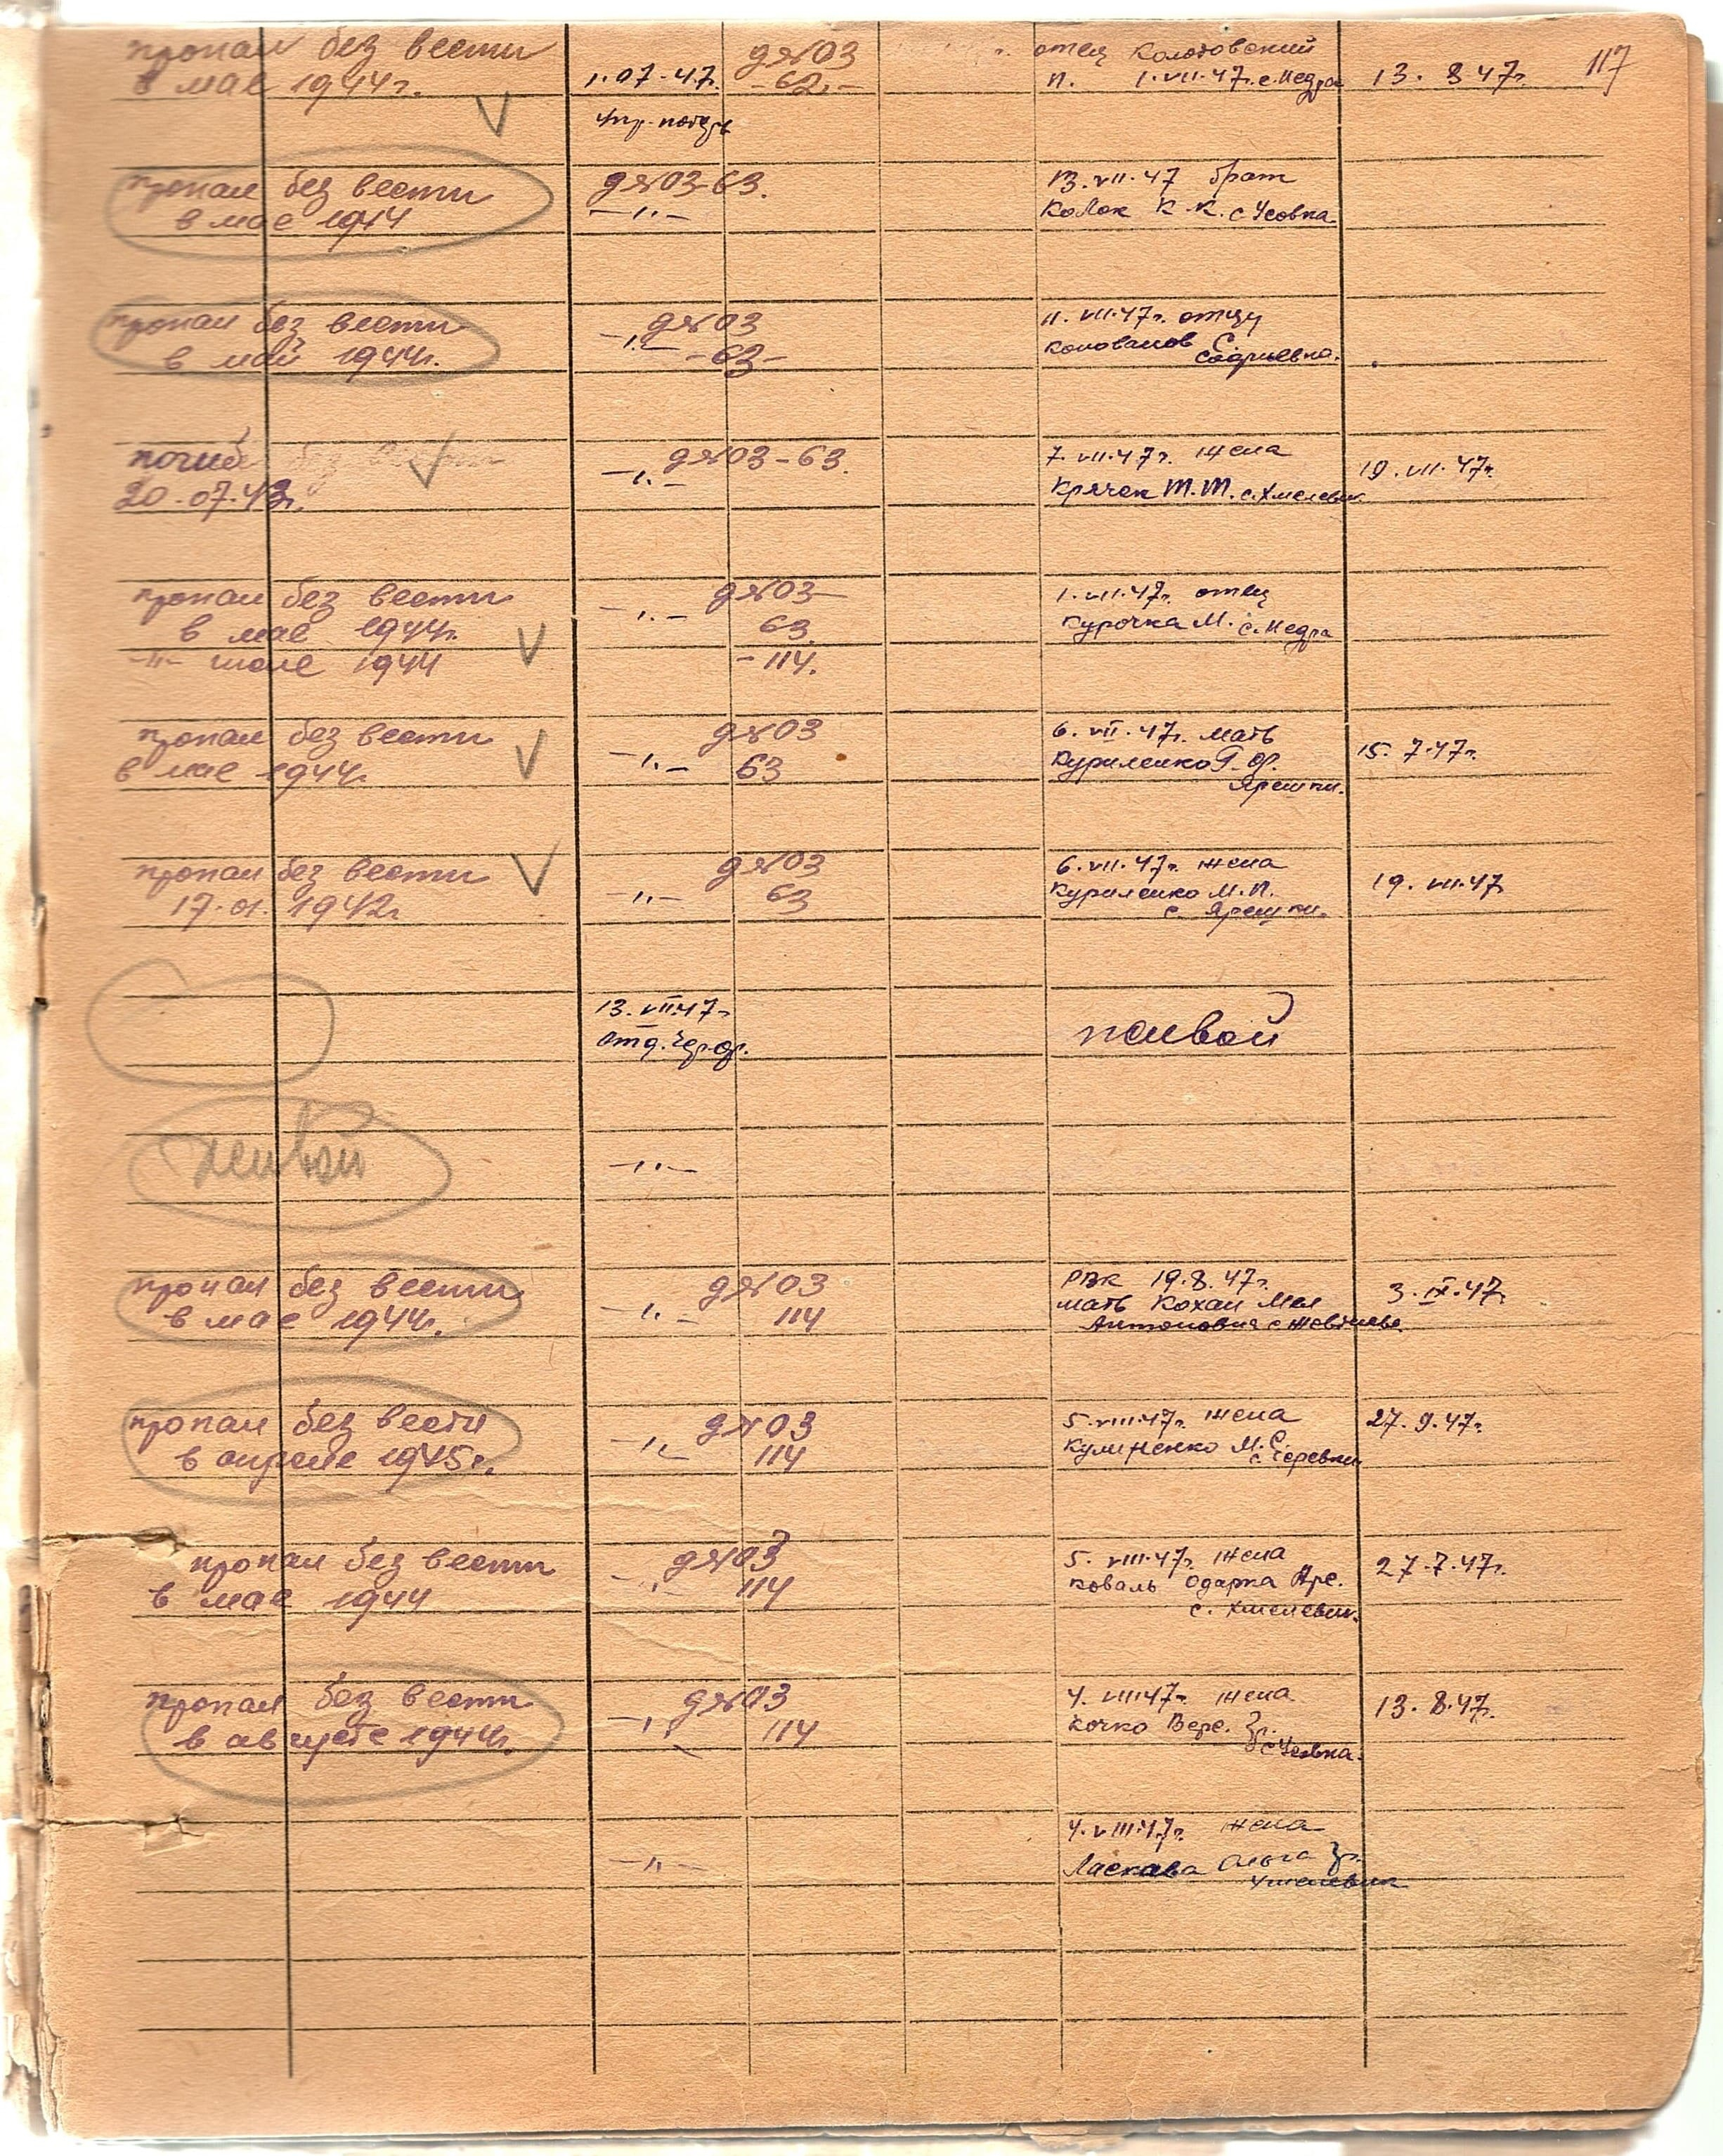 117
пропал без вести
в мае 1944г.
1.07.47.
Упр. потерь
дя03
-62.-
отец Колотовский
п. 1.VII.47г. с. Недра
13.8 47г.
пропал без вести
в мае 1944
дя03-63.
-"-
13.VII.47 брат
Колок К. К. с Усовка
пропал без вести
в май 1944г.
-"-
дя03
-63-
11.VII.47г. отцу
погиб без вести
20.07.43г.
-"-
дя03-63.
7.VII.47г. жена
Крячек М. М. с. Хмелевик
19.VII.47г.
пропал без вести
в мае 1944г.
-"- июле 1944
-"-
дя03-
63
-114.
1.VII.47г. отец
Курочка М. с. Недра
пропал без вести
в мае 1944г.
-"-
дя03
63
6.VII.47г. мать
Куриленко
Ярешки.
15.7.47г.
пропал без вести
17.01.1942г
-"-
дя03
63
6.VII.47г. жена
Куриленко М. П.
с. Ярешки.
19.VII.47
13.VII.47г
живой
живой
-"-
пропал без вести
в мае 1944г.
-"-
дя03
114
РВК 19.8.47г.
мать Кохан
Антоновна с
3.IX.47г.
пропал без вести
в апреле 1945г.
-"-
дя03
114
5.VIII.47г. жена
М. С.
27.9.47г.
пропал без вести
в мае 1944
-"-
дя03
114
5.VIII.47г. жена
Коваль Одарка
с. Хмелевик.
27.7.47г.
пропал без вести
в августе 1944г.
-"-
дя03
114
4.VIII47г жена
Кочко Вере.
с Усовка.
13.8.47г.
-"-
4.VIII.47г. жена
Ласкава Ольга
Хмелевик